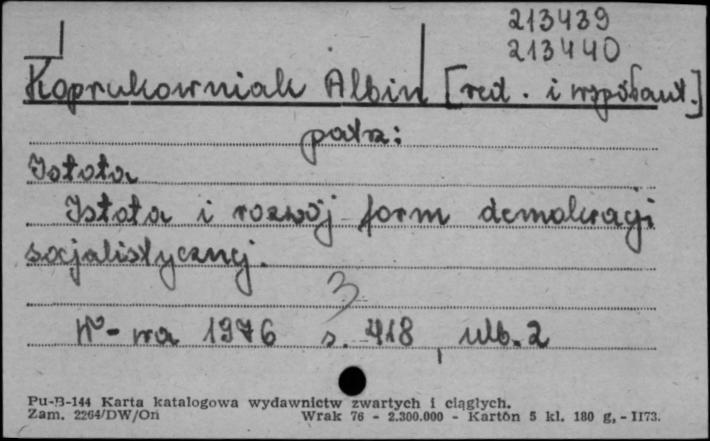 213439
213440
Koprukowniak Albin [red. i współaut.]
patrz:
Istota
Istota i rozwój form demokracji
socjalistycznej.
3
W-wa 1976 s. 418, nlb. 2
Pu-B-144 Karta katalogowa wydawnictw zwartych i ciągłych.
Zam. 2264/DW/Oń Wrak 76 - 2.300.000 - Kartón 5 kl. 180 g, - II73.